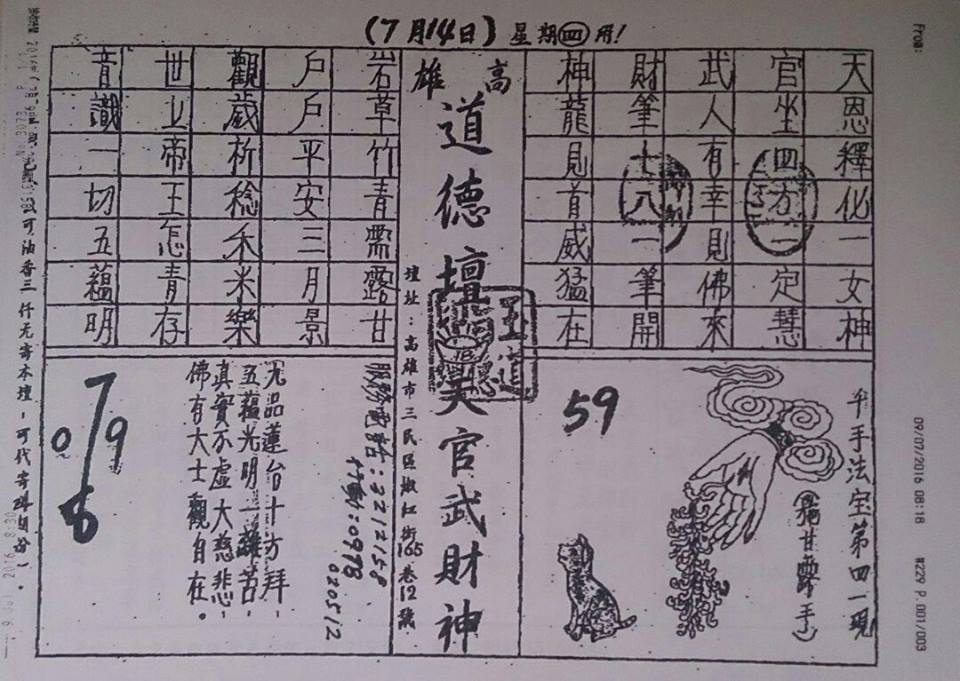 (7月14日)星期四用!
天恩釋化一女神
官坐四方一定慧
武人有幸則佛來
財筆十八一筆開
神龍見首威猛在
高雄
道德壇天官武財神
壇址:高雄市三民區 紅街165巷12號
岩章竹青需露甘
戶戶平安三月景
觀歲祈稔禾米樂
世上帝王怎青存
音識一切五蘊明
千手法宝第四一現
甘露手
59
服務電話:3212158
行動:0978
020512
九品蓮台十方拜,
五蘊光明一離苦,
真實不虛大慈悲,
佛有大士觀自在。
7
0 9
6
可油香三仟元寄本壇-可代寄 份!。
From:
09/07/2016 08:18
#229 P.001/003